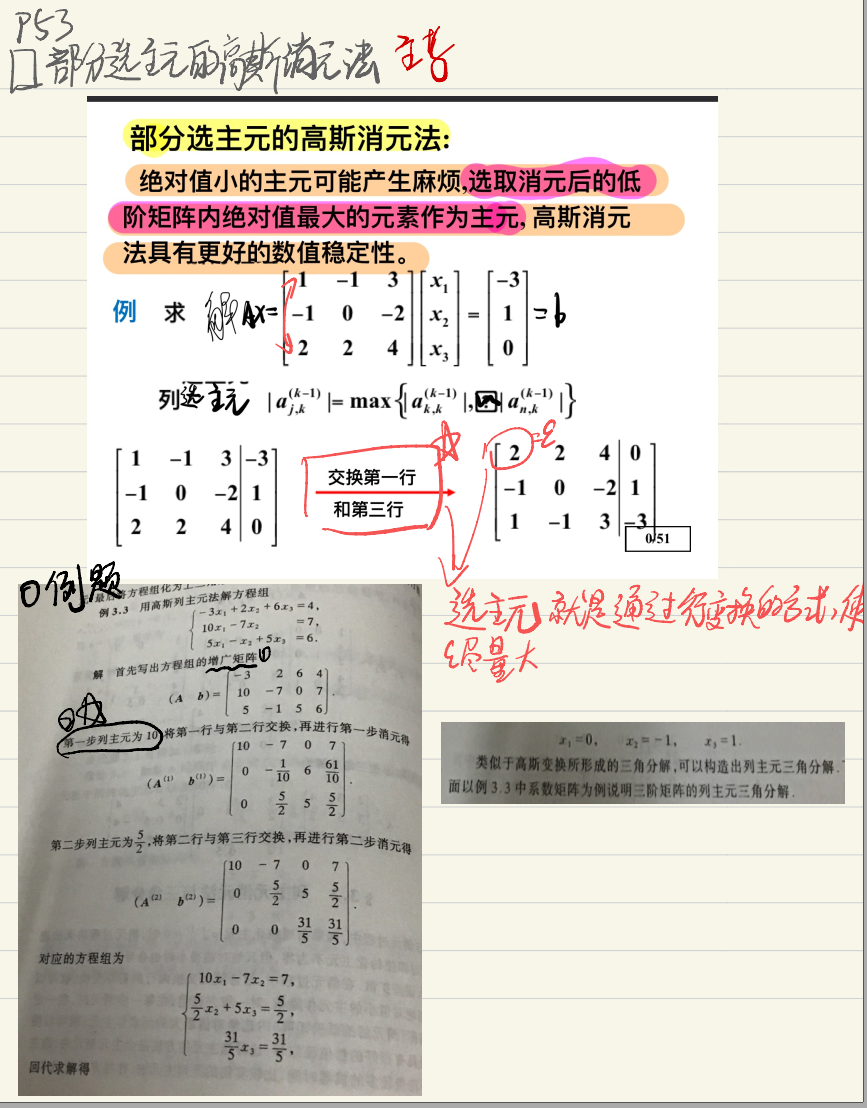 P53
□部分选主元的高斯消元法 主考
部分选主元的高斯消元法:
绝对值小的主元可能产生麻烦,选取消元后的低
阶矩阵内绝对值最大的元素作为主元, 高斯消元
法具有更好的数值稳定性。
例 求 解 AX=
1 -1 3 x₁ -3
-1 0 -2 x₂ = 1 = b
2 2 4 x₃ 0
列选主元 |a_{j,k}^{(k-1)}|= max{|a_{k,k}^{(k-1)}|, |a_{n,k}^{(k-1)}|}
1 -1 3 -3
-1 0 -2 1
2 2 4 0
交换第一行
和第三行
2 2 4 0
-1 0 -2 1
1 -1 3 -3
=ε
0/51
选主元,就是通过行变换的方式,使
ε尽量大
例题
例 3.3 用高斯列主元法解方程组
-3x₁+2x₂+6x₃=4,
10x₁-7x₂ =7,
5x₁-x₂+5x₃ =6.
解 首先写出方程组的增广矩阵
(A b)=
-3 2 6 4
10 -7 0 7
5 -1 5 6
第一步列主元为 10,将第一行与第二行交换,再进行第一步消元得
(A⁽¹⁾ b⁽¹⁾)=
10 -7 0 7
0 -1/10 6 61/10
0 5/2 5 5/2
第二步列主元为5/2,将第二行与第三行交换,再进行第二步消元得
(A⁽²⁾ b⁽²⁾)=
10 -7 0 7
0 5/2 5 5/2
0 0 31/5 31/5
对应的方程组为
10x₁-7x₂=7,
5/2x₂+5x₃=5/2,
31/5x₃=31/5,
回代求解得
x₁=0, x₂=-1, x₃=1.
类似于高斯变换所形成的三角分解,可以构造出列主元三角分解.
面以例 3.3 中系数矩阵为例说明三阶矩阵的列主元三角分解.